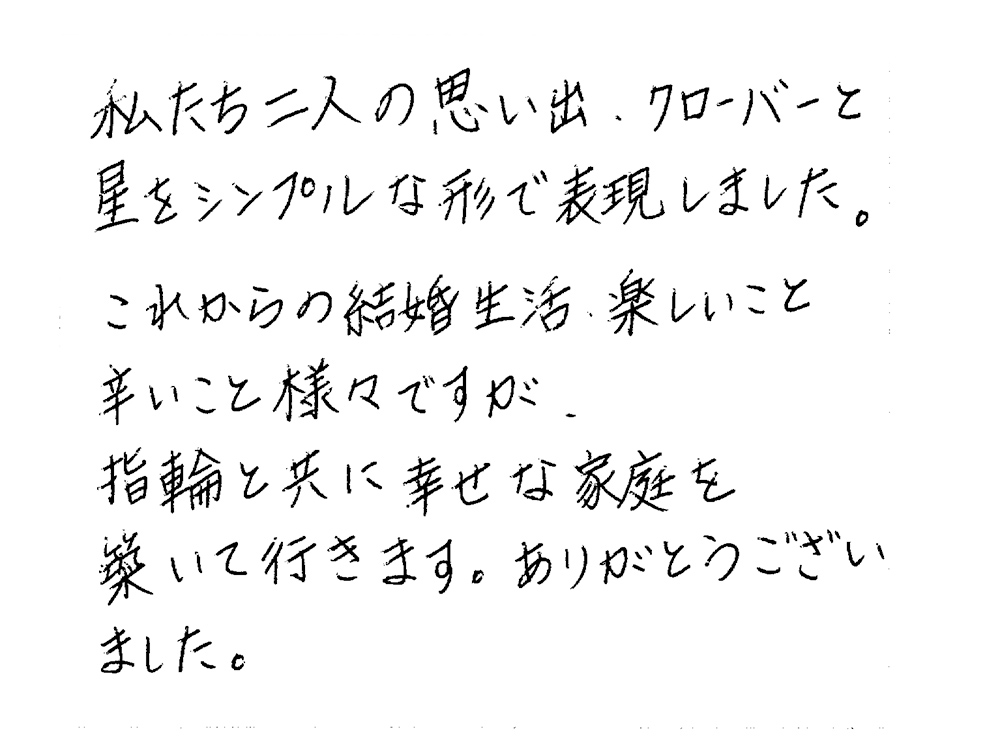 私たち二人の思い出、クローバーと
星をシンプルな形で表現しました。
これからの結婚生活、楽しいこと
辛いこと様々ですが、
指輪と共に幸せな家庭を
築いて行きます。ありがとうござい
ました。